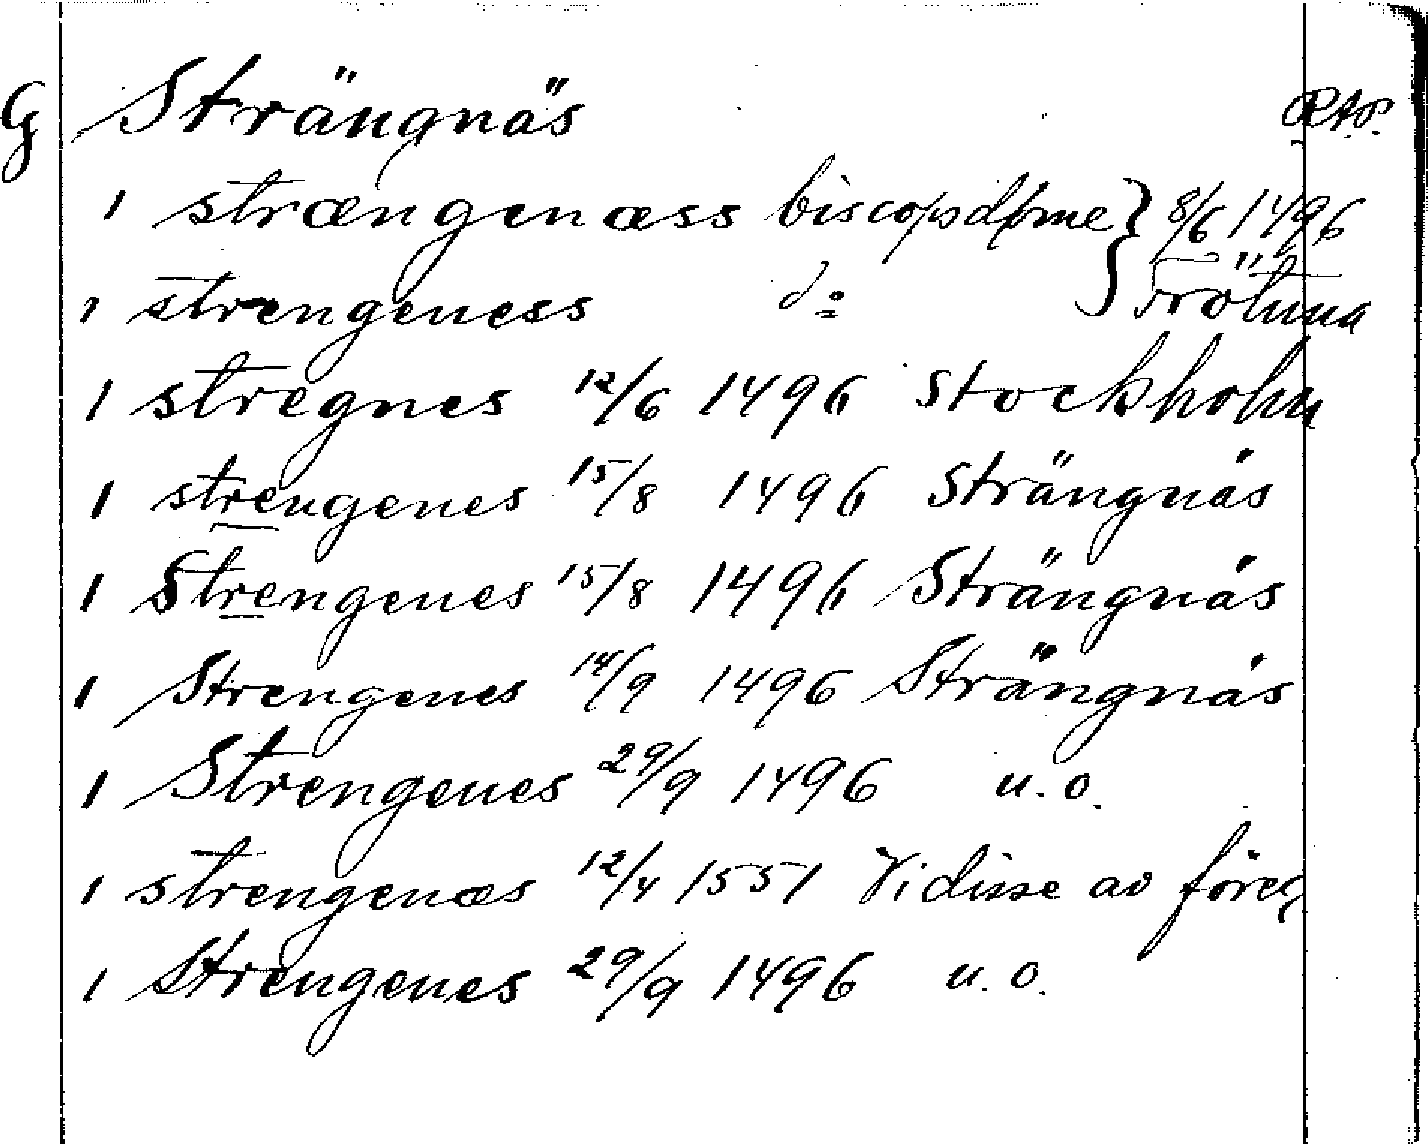 G Strängnäs
1 strængenæss biscopsdøme } 8/6 1496
1 strengeness do } Frötuna
1 stregnes 12/6 1496 Stockholm
1 strengenes 15/8 1496 Strängnäs
1 Strengenes 15/8 1496 Strängnäs
1 Strengenes 14/9 1496 Strängnäs
1 Strengenes 29/9 1496 u.o.
1 strengenæs 12/4 1551 Vidisse av föreg
1 Strengenes 29/9 1496 u.o.